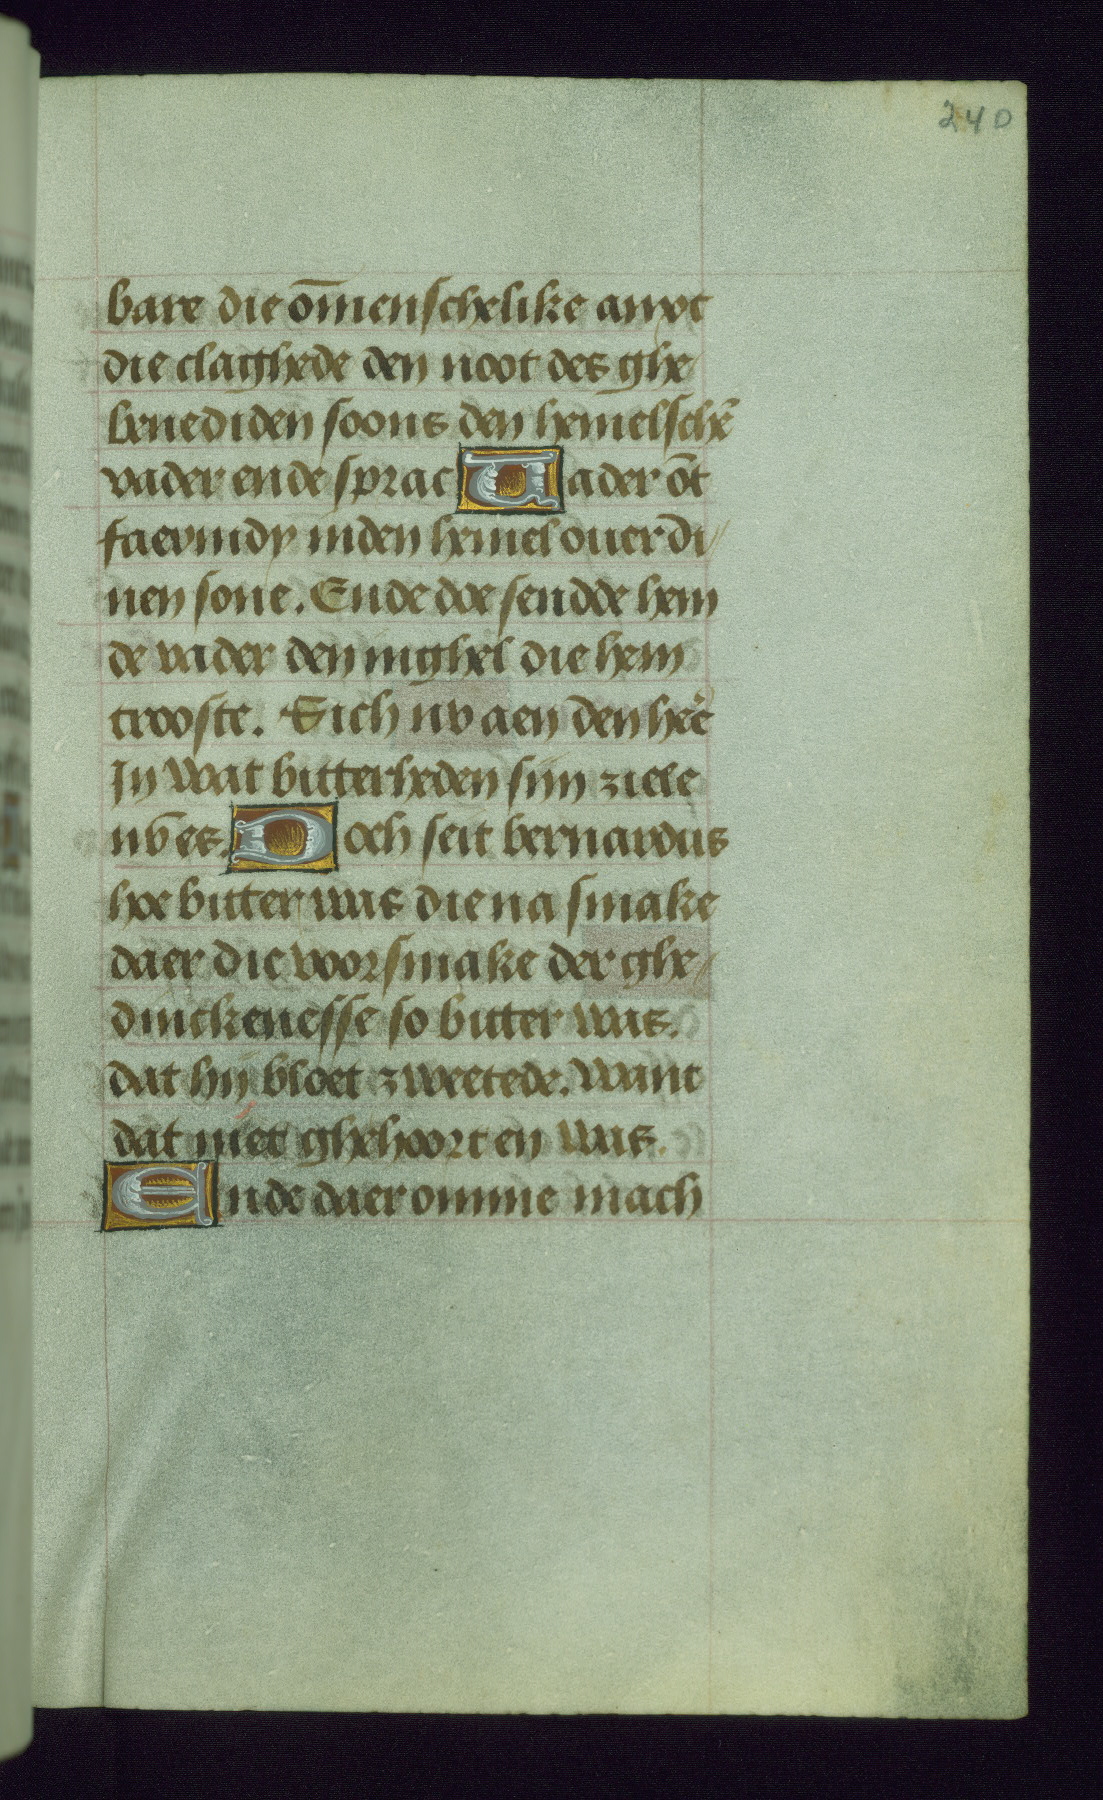 240
bare die om̄enschelike anxt
die claghede den noot des ghe
benediden soons den hemelschē
vader ende sprac Vader ōt
faermdy inden hemel ouer di
nen sone. Ende doe sendde hem
de vader den inghel die hem
trooste. Sich nv aen den hēē
In wat bitterheden sijn ziele
nv̄ es. Doch seit bernardus
hoe bitter was die na smake
daer die voorsmake der ghe
dinckenesse so bitter was.
dat hij bloet zweetede. Want
dat niet ghehoort en was.
Ende daer omme mach